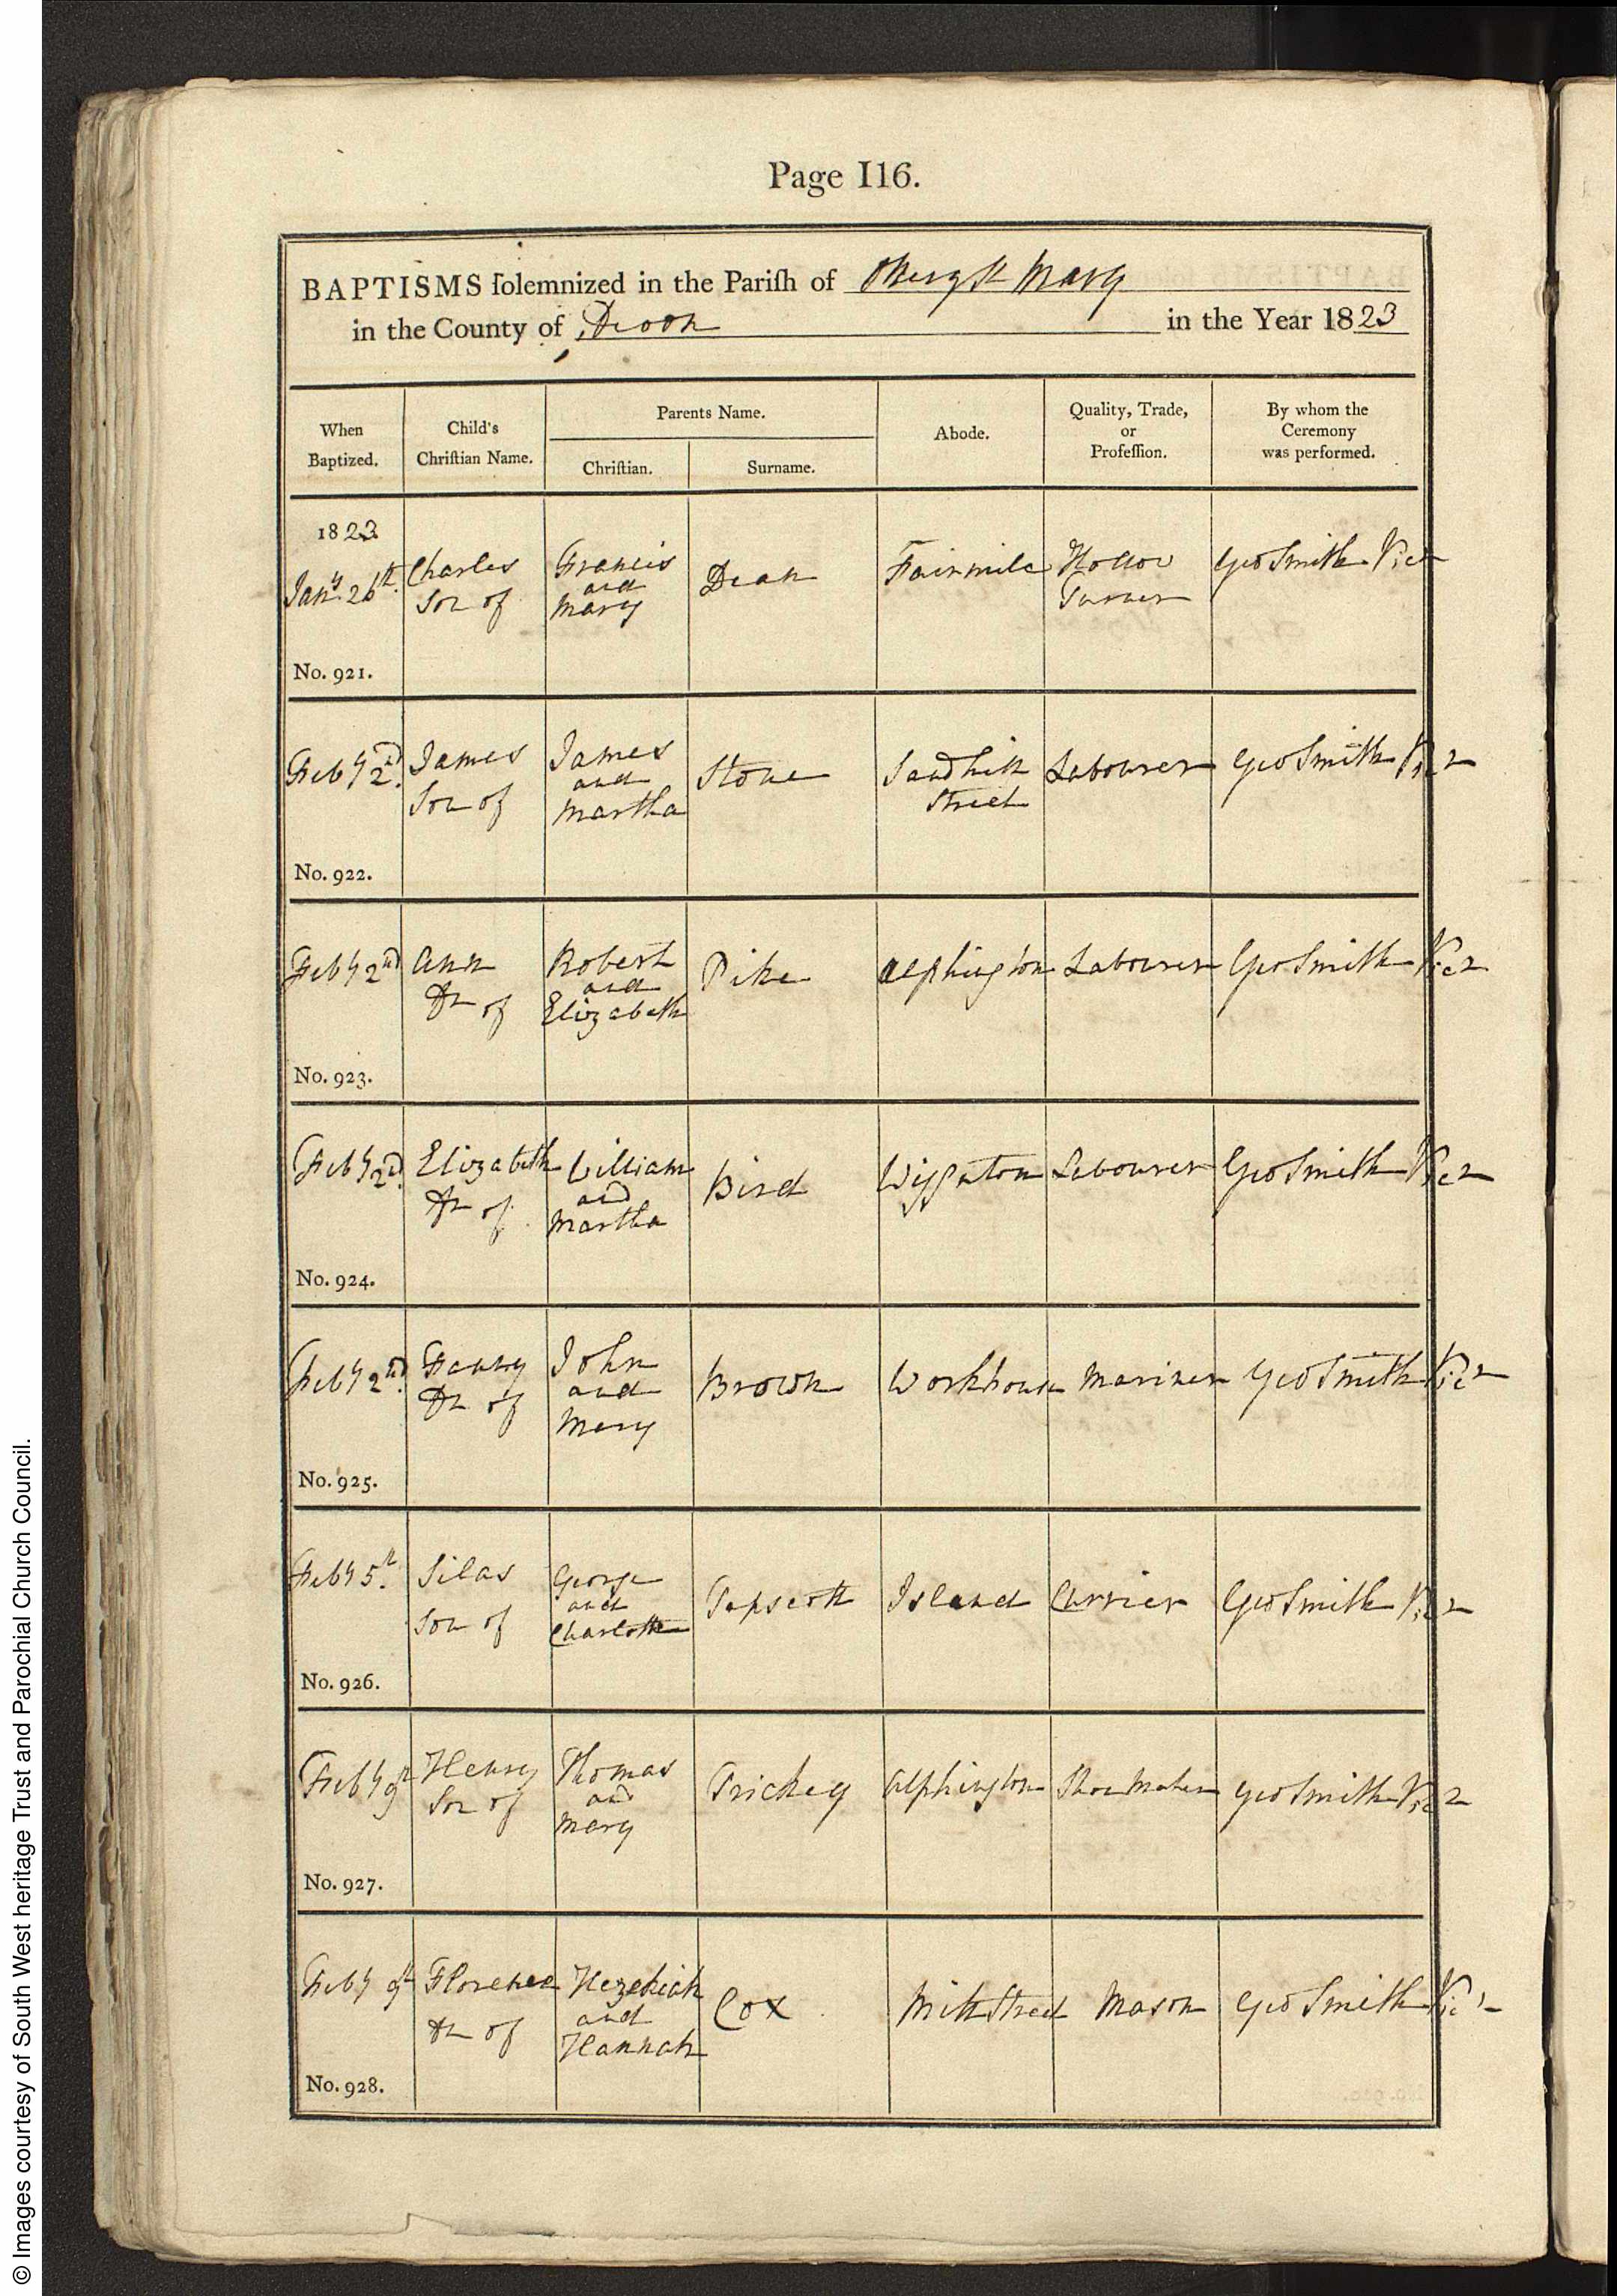 Page 116.
BAPTISMS ſolemnized in the Pariſh of Ottery St Mary
in the County of Devon in the Year 1823
When Baptized.
Child's Chriſtian Name.
Parents Name.
Chriſtian.
Surname.
Abode.
Quality, Trade, or Profeſſion.
By whom the Ceremony was performed.
1823
Jany. 26th. Charles Son of Francis and Mary Dean Fairmile Hollow Turner Geo Smith Vicr
No. 921.
Feby 2nd. James Son of James and Martha Stone Sandhill Street Labourer Geo Smith Vicr
No. 922.
Feby 2nd Ann Dr of Robert and Elizabeth Pike Alphington Labourer Geo Smith Vicr
No. 923.
Feby 2d. Elizabeth Dr of William and Martha Bird Wiggaton Labourer Geo Smith Vicr
No. 924.
Feby 2nd. Fanny Dr of John and Mary Brown Workhouse Mariner Geo Smith Vicr
No. 925.
Feby 5th. Silas Son of George and Charlotte Tapscott Island Currier Geo Smith Vicr
No. 926.
Feby 9th Henry Son of Thomas and Mary Trickey Alphington Shoe Maker Geo Smith Vicr
No. 927.
Feby 9th Florence Dr of Hezekiah and Hannah Cox Mill Street Mason Geo Smith Vicr
No. 928.
© Images courtesy of South West heritage Trust and Parochial Church Council.